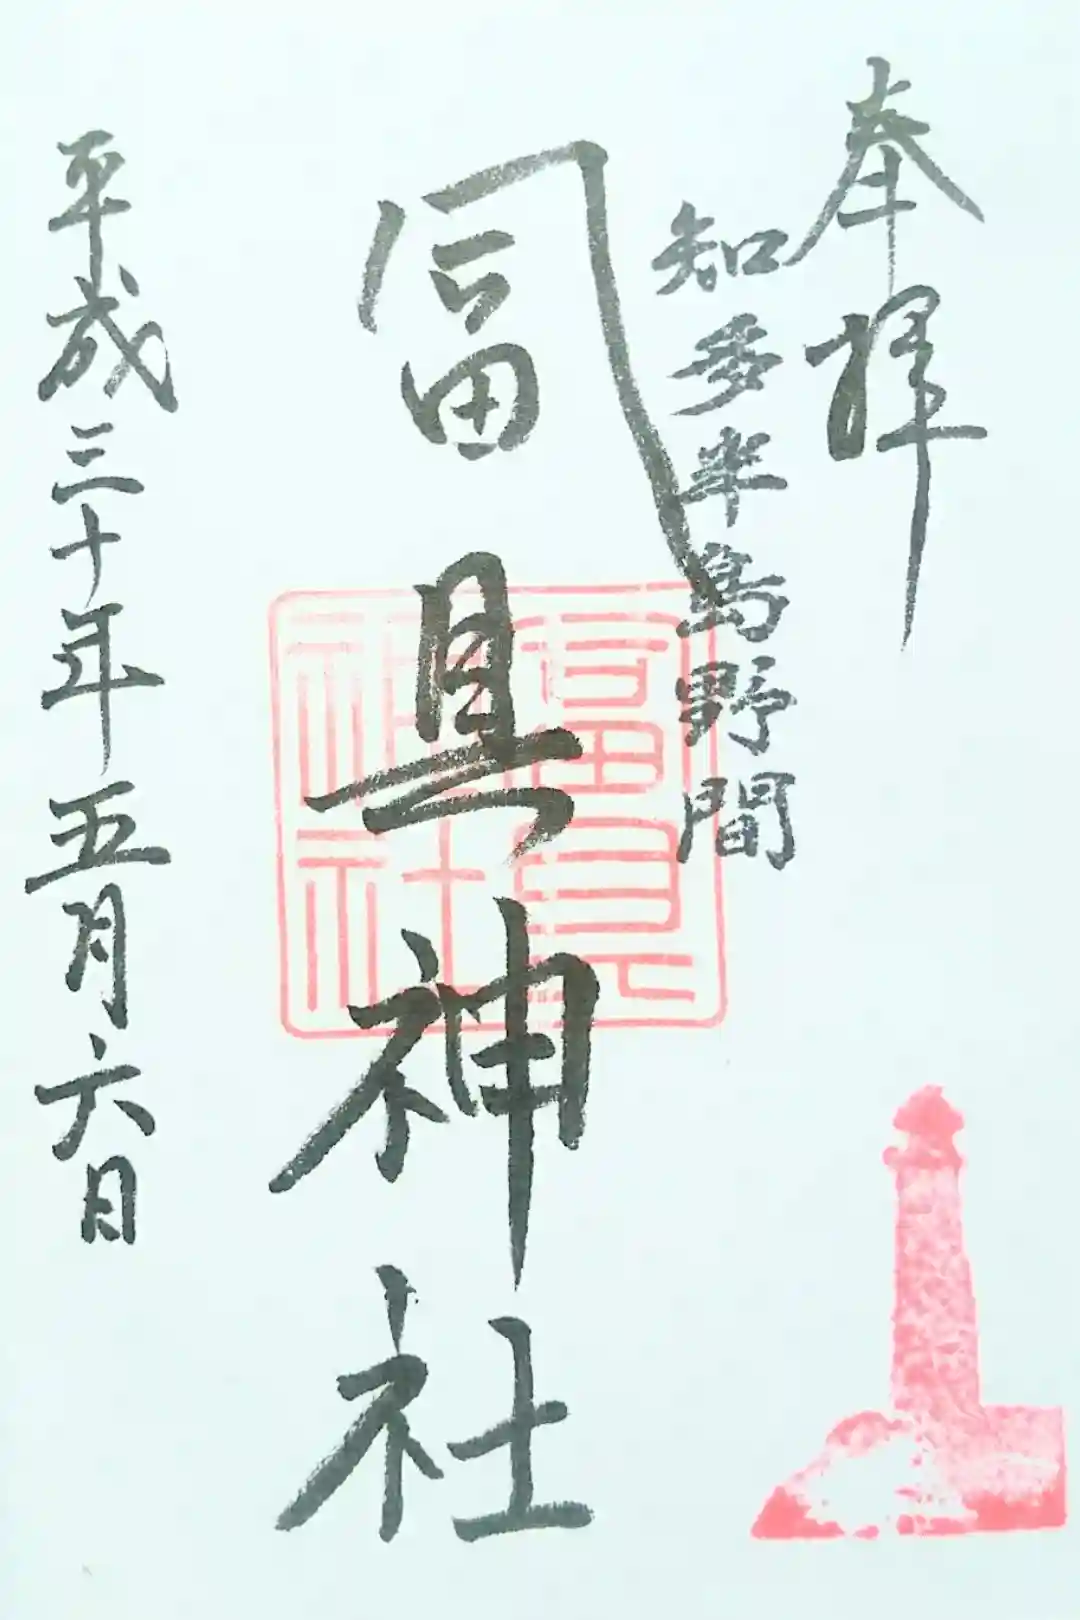 奉拝
知多半島野間
冨具神社
冨具
神社
平成三十年五月六日